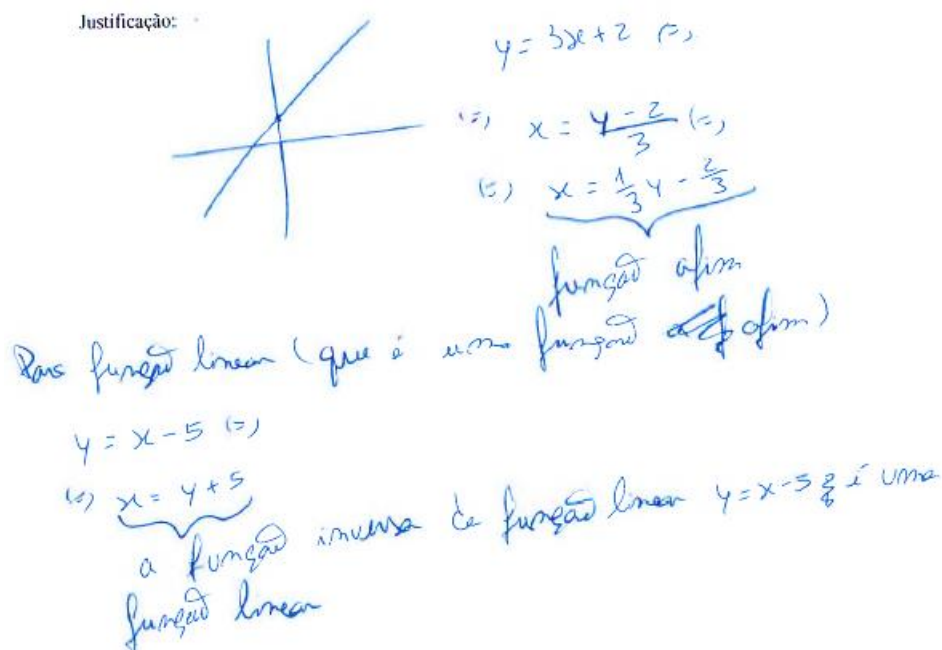 Justificação:
y = 3x+2 (=)
(=) x = y-2/3 (=)
(=) x = 1/3 y - 2/3
função afim
Para função linear (que é uma função afim)
y = x-5 (=)
(=) x = y+5
a função inversa da função linear y=x-5 é uma
função linear